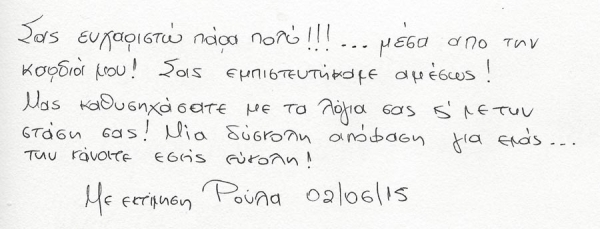 Σας ευχαριστώ πάρα πολύ!!!... μέσα απο την
καρδιά μου! Σας εμπιστευτήκαμε αμέσως!
Μας καθυσηχάσατε με τα λόγια σας κ' με την
στάση σας! Μία δύσκολη απόφαση για εμάς...
την κάνατε εσείς εύκολη!
Με εκτίμηση Ρούλα 02/06/15